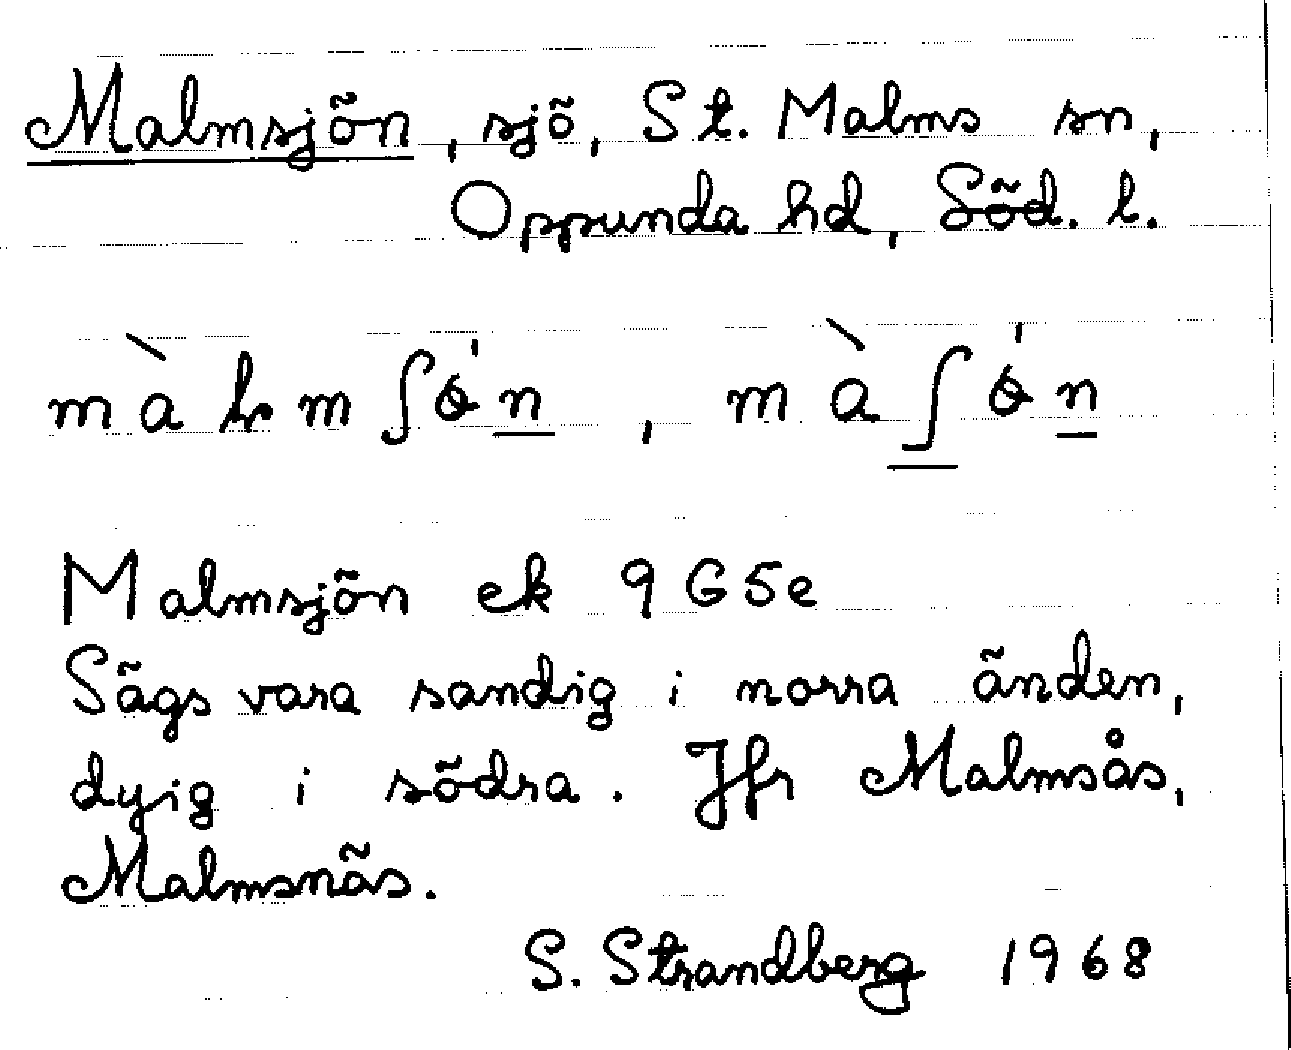 Malmsjön, sjö, St. Malms sn,
Oppunda hd, Söd. l.
Malmsjön ek 9G5e
Sägs vara sandig i norra änden,
dyig i södra. Jfr Malmsås,
Malmsnäs.
S. Strandberg 1968